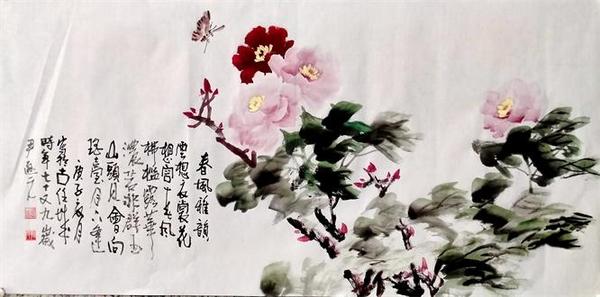 春風雅韻
雲想衣裳花
想容春風
拂檻露華
濃若非群玉
山頭見會向
瑤臺月下逢
庚子夏月
時年七十又九歲